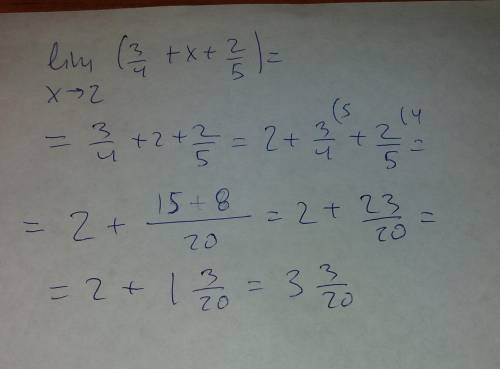 lim (3/4 + x + 2/5) =
x→2
= 3/4 + 2 + 2/5 = 2 + 3/4 (5 + 2/5 (4 =
= 2 + (15 + 8)/20 = 2 + 23/20 =
= 2 + 1 3/20 = 3 3/20